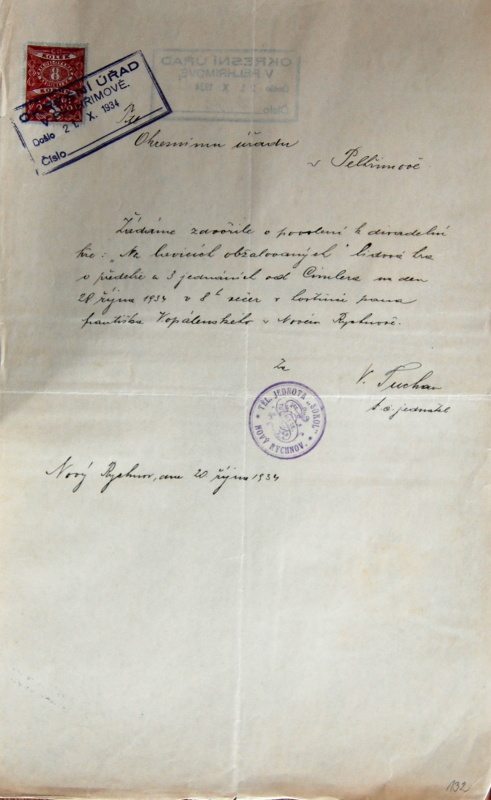 KOLEK
8
OKRESNÍ ÚŘAD
V PELHŘIMOVĚ.
Došlo 21. X. 1934
Číslo
OKRESNÍ ÚŘAD
V PELHŘIMOVĚ.
Okresnímu úřadu
v Pelhřimově.
Žádáme zdvořile o povolení k divadelní
hře: „Na lavicích obžalovaných" lidová hra
o předehře a 3 jednáních od Cimlera na den
28 října 1934 v 8 h večer v hostinci pana
františka Kopálenského v Novém Rychnově.
Za
V. Tuchan
t. č. jednatel
TĚL. JEDNOTA „SOKOL"
NOVÝ RYCHNOV.
Nový Rychnov, dne 20 října 1934
132